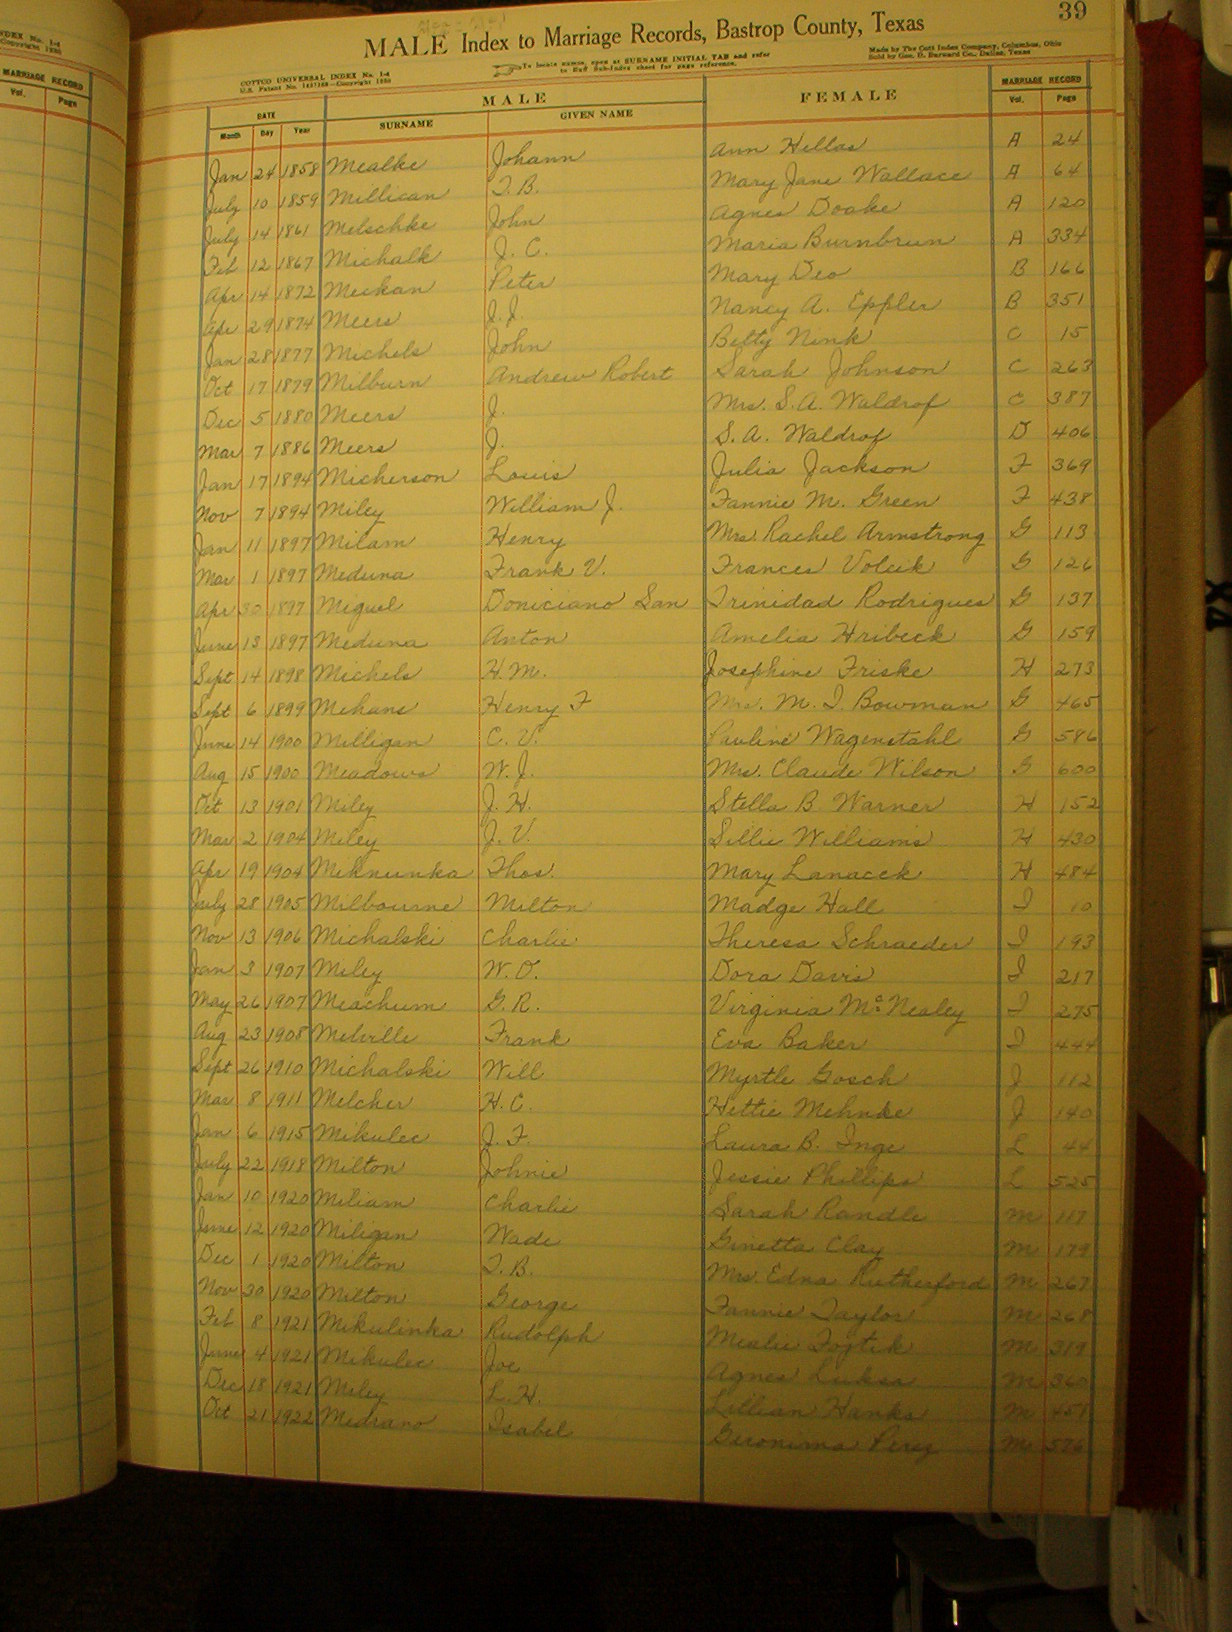 39
MALE Index to Marriage Records, Bastrop County, Texas
COTTCO UNIVERSAL INDEX No. 1-4
To locate names, open at SURNAME INITIAL TAB and refer
to Buff Sub-Index sheet for page reference.
Made by The Cott Index Company, Columbus, Ohio
Sold by Geo. D. Barnard Co., Dallas, Texas
MARRIAGE RECORD
Vol. Page
DATE MALE FEMALE MARRIAGE RECORD
Month Day Year SURNAME GIVEN NAME Vol. Page
Jan 24 1858 Mealke Johann Ann Hellas A 24
July 10 1859 Millican T. B. Mary Jane Wallace A 64
July 14 1861 Metschke John Agnes Doake A 120
Feb 12 1867 Michalk J. C. Maria Burnbrun A 334
Apr 14 1872 Meckan Peter Mary Deo B 166
Apr 29 1874 Meers J. J. Nancy A. Eppler B 351
Jan 28 1877 Michels John Betty Nink C 15
Oct 17 1879 Milburn Andrew Robert Sarah Johnson C 263
Dec 5 1880 Meers J. Mrs. S. A. Waldrof C 387
Mar 7 1886 Meers J. S. A. Waldrof D 406
Jan 17 1894 Micherson Louis Julia Jackson F 369
Nov 7 1894 Miley William J. Fannie M. Green F 438
Jan 11 1897 Milam Henry Mrs. Rachel Armstrong G 113
Mar 1 1897 Meduna Frank V. Frances Volcik G 126
Apr 30 1897 Miguel Doniciano San Trinidad Rodrigues G 137
June 13 1897 Meduna Anton Amelia Hribeck G 159
Sept 14 1898 Michels H. M. Josephine Friske H 273
Sept 6 1899 Mehans Henry F Mrs. M. I. Bowman G 465
June 14 1900 Milligan C. V. Pauline Wagenstahl G 586
Aug 15 1900 Meadows W. J. Mrs. Claude Wilson G 600
Oct 13 1901 Miley J. H. Stella B. Warner H 152
Mar 2 1904 Miley J. V. Lillie Williams H 430
Apr 19 1904 Miknunka Thos. Mary Lanacek H 484
July 28 1905 Milbourne Milton Madge Hall I 10
Nov 13 1906 Michalski Charlie Theresa Schraeder I 193
Jan 3 1907 Miley W. O. Dora Davis I 217
May 26 1907 Meachum G. R. Virginia McNealey I 275
Aug 23 1908 Melville Frank Eva Baker I 444
Sept 26 1910 Michalski Will Myrtle Gosch J 112
Mar 8 1911 Melcher H. C. Hettie Mehnke J 140
Jan 6 1915 Mikulec J. F. Laura B. Inge L 44
July 22 1918 Milton Johnie Jessie Phillips L 525
Jan 10 1920 Miliam Charlie Sarah Randle M 117
June 12 1920 Miligan Wade Ginetta Clay M 179
Dec 1 1920 Milton T. B. Mrs. Edna Rutherford M 267
Nov 30 1920 Milton George Fannie Taylor M 268
Feb 8 1921 Mikulinka Rudolph Fojtik M 319
June 4 1921 Mikulec Joe Agnes Luksa M 360
Dec 18 1921 Miley L. H. Lillian Hanks M 451
Oct 21 1922 Medrano Isabel Geronima Perez M 576